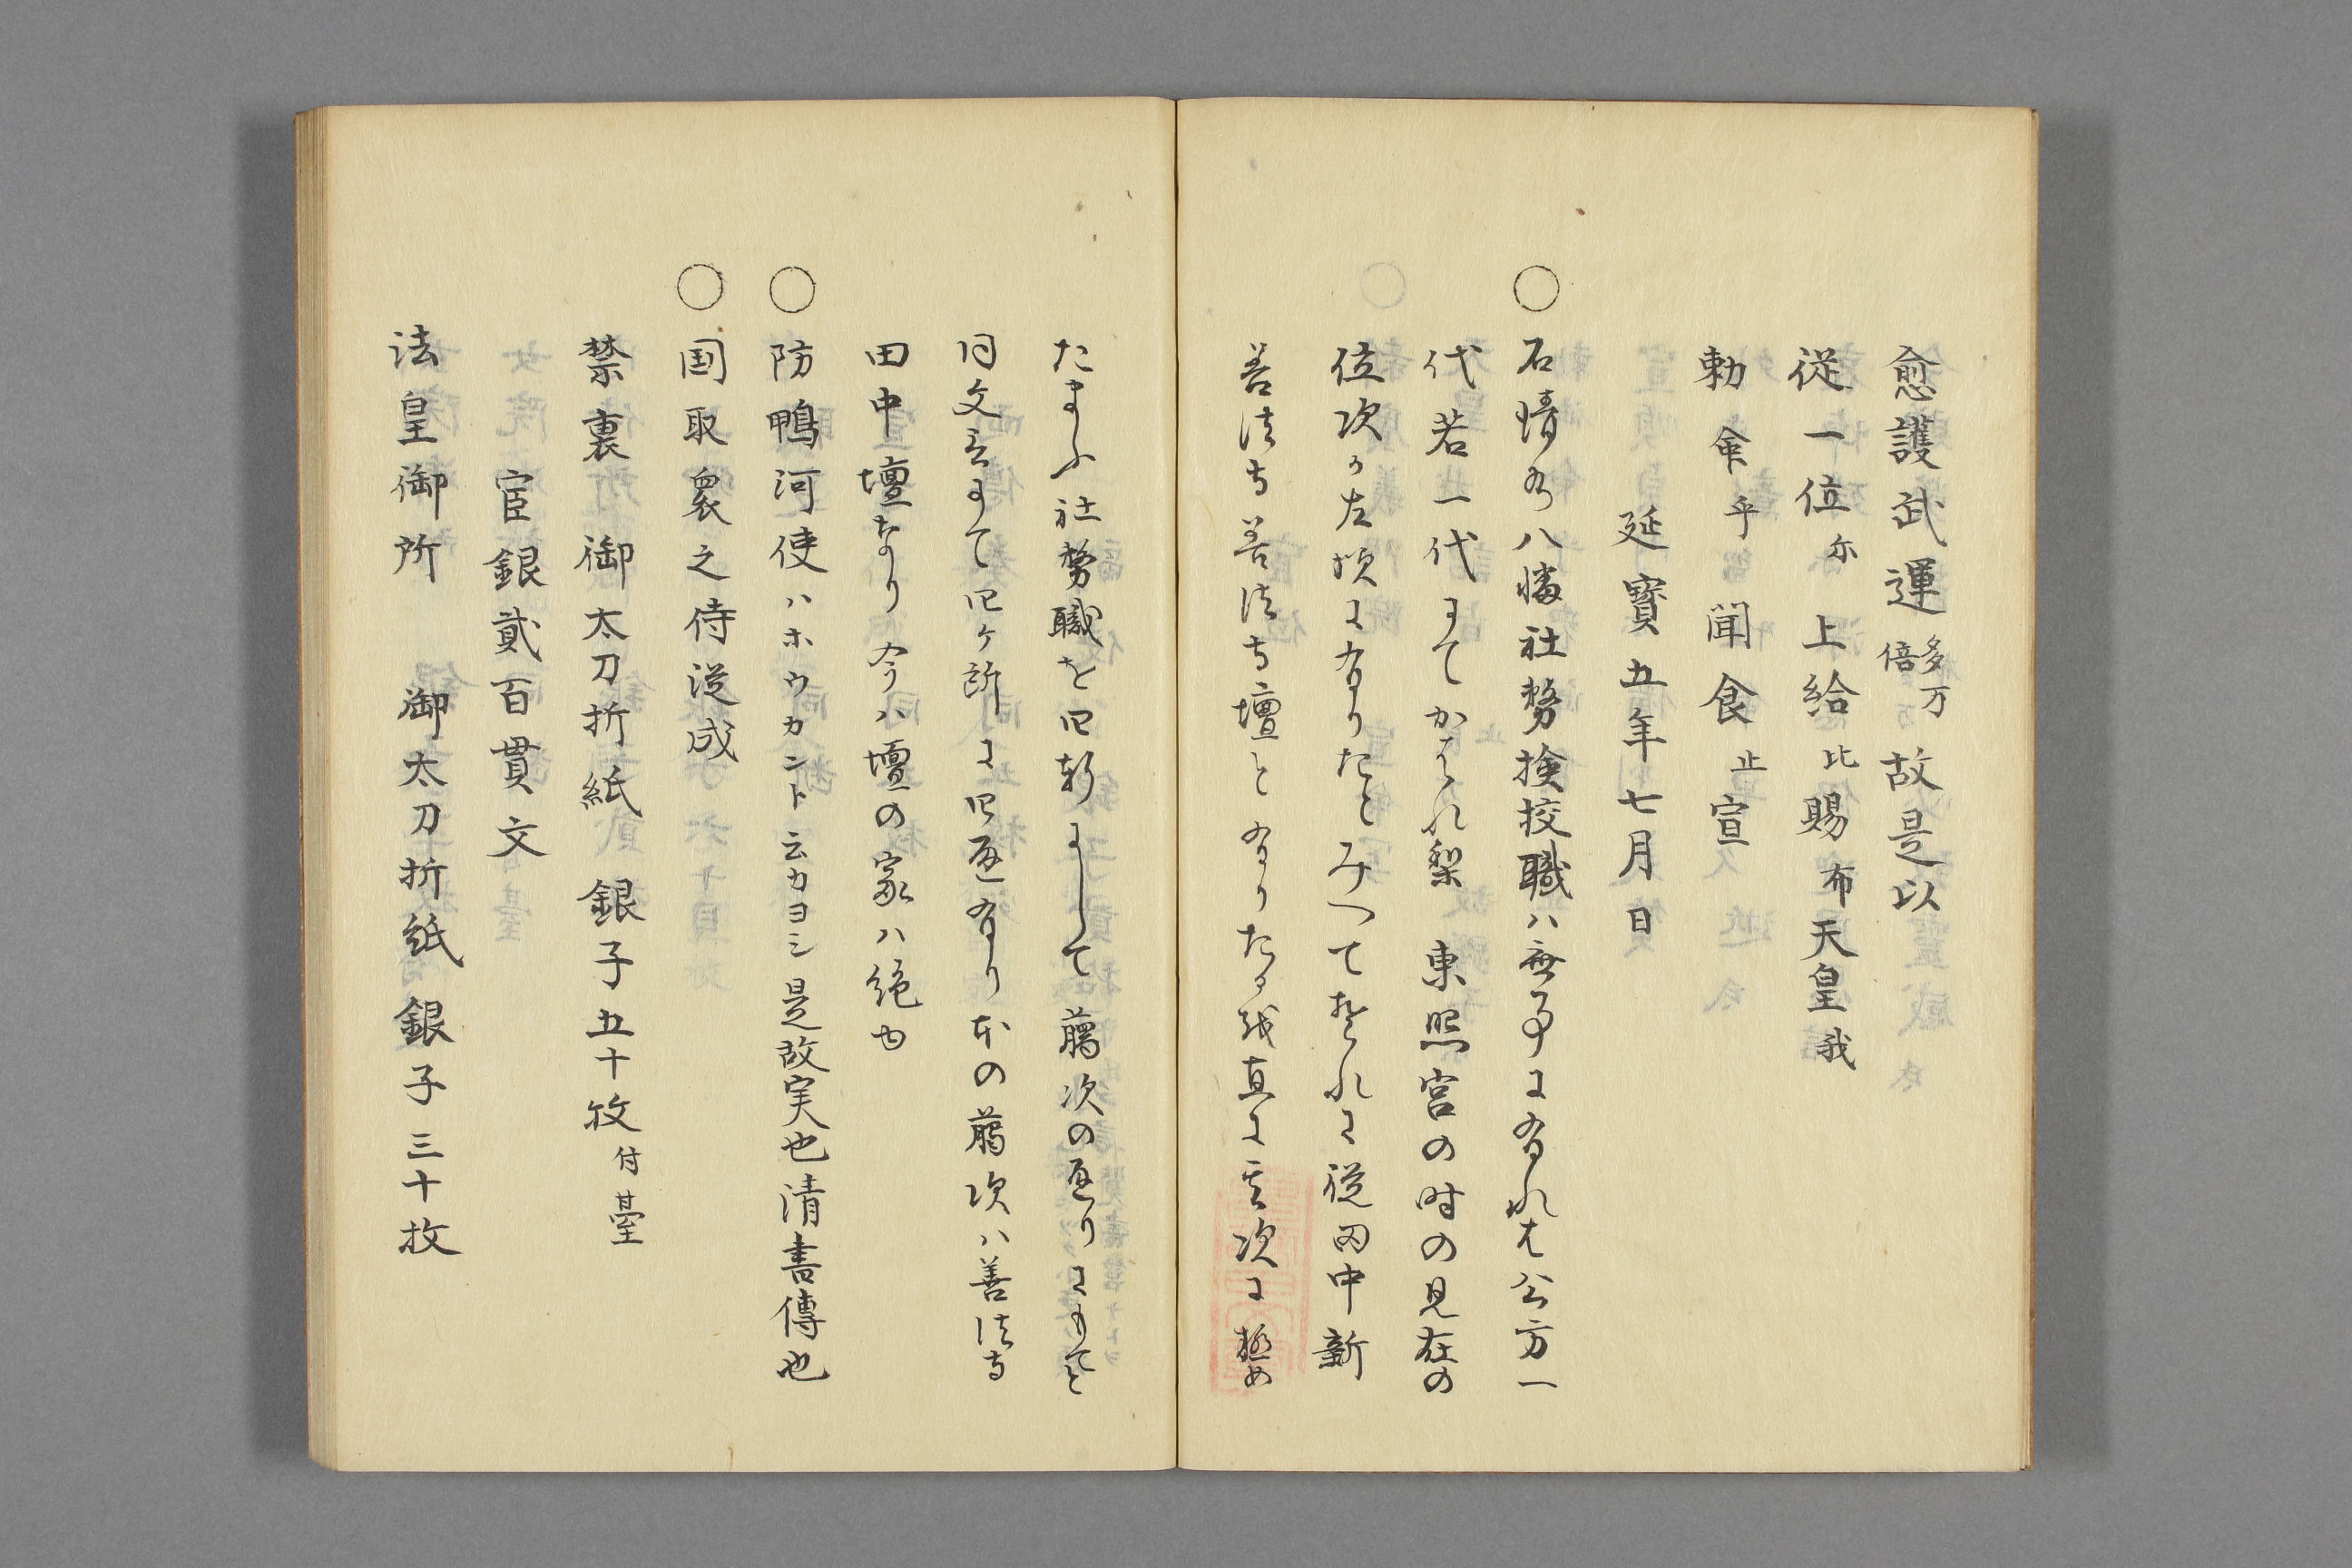 愈護武運倍多万故是以
従一位尓上給比賜布天皇我
勅命乎聞食止宣
延寳五年七月日
○石清水八幡社務撿挍職ハ無事にあれは公方一
代若一代にてかはれ 東照宮の時の見在の
位次か左状にありたとみへてそれに従田中新
善法寺善法寺壇とありたる故直に其次に極め
たまふ社務職を四軒にして﨟次の通りにもてと
同文言にて四ケ所に四通あり本の﨟次ハ善法寺
田中壇なり今ハ壇の家ハ絶也
○防鴨河使ハホウカント云カヨシ是故実也清書傳也
○国取衆之侍従成
禁裏御太刀折紙 銀子五十枚付臺
宦銀貳百貫文
法皇御所 御太刀折紙銀子三十枚